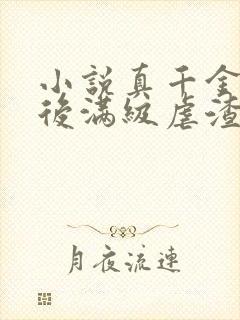 小說真千金
後滿級虐渣
月夜流連